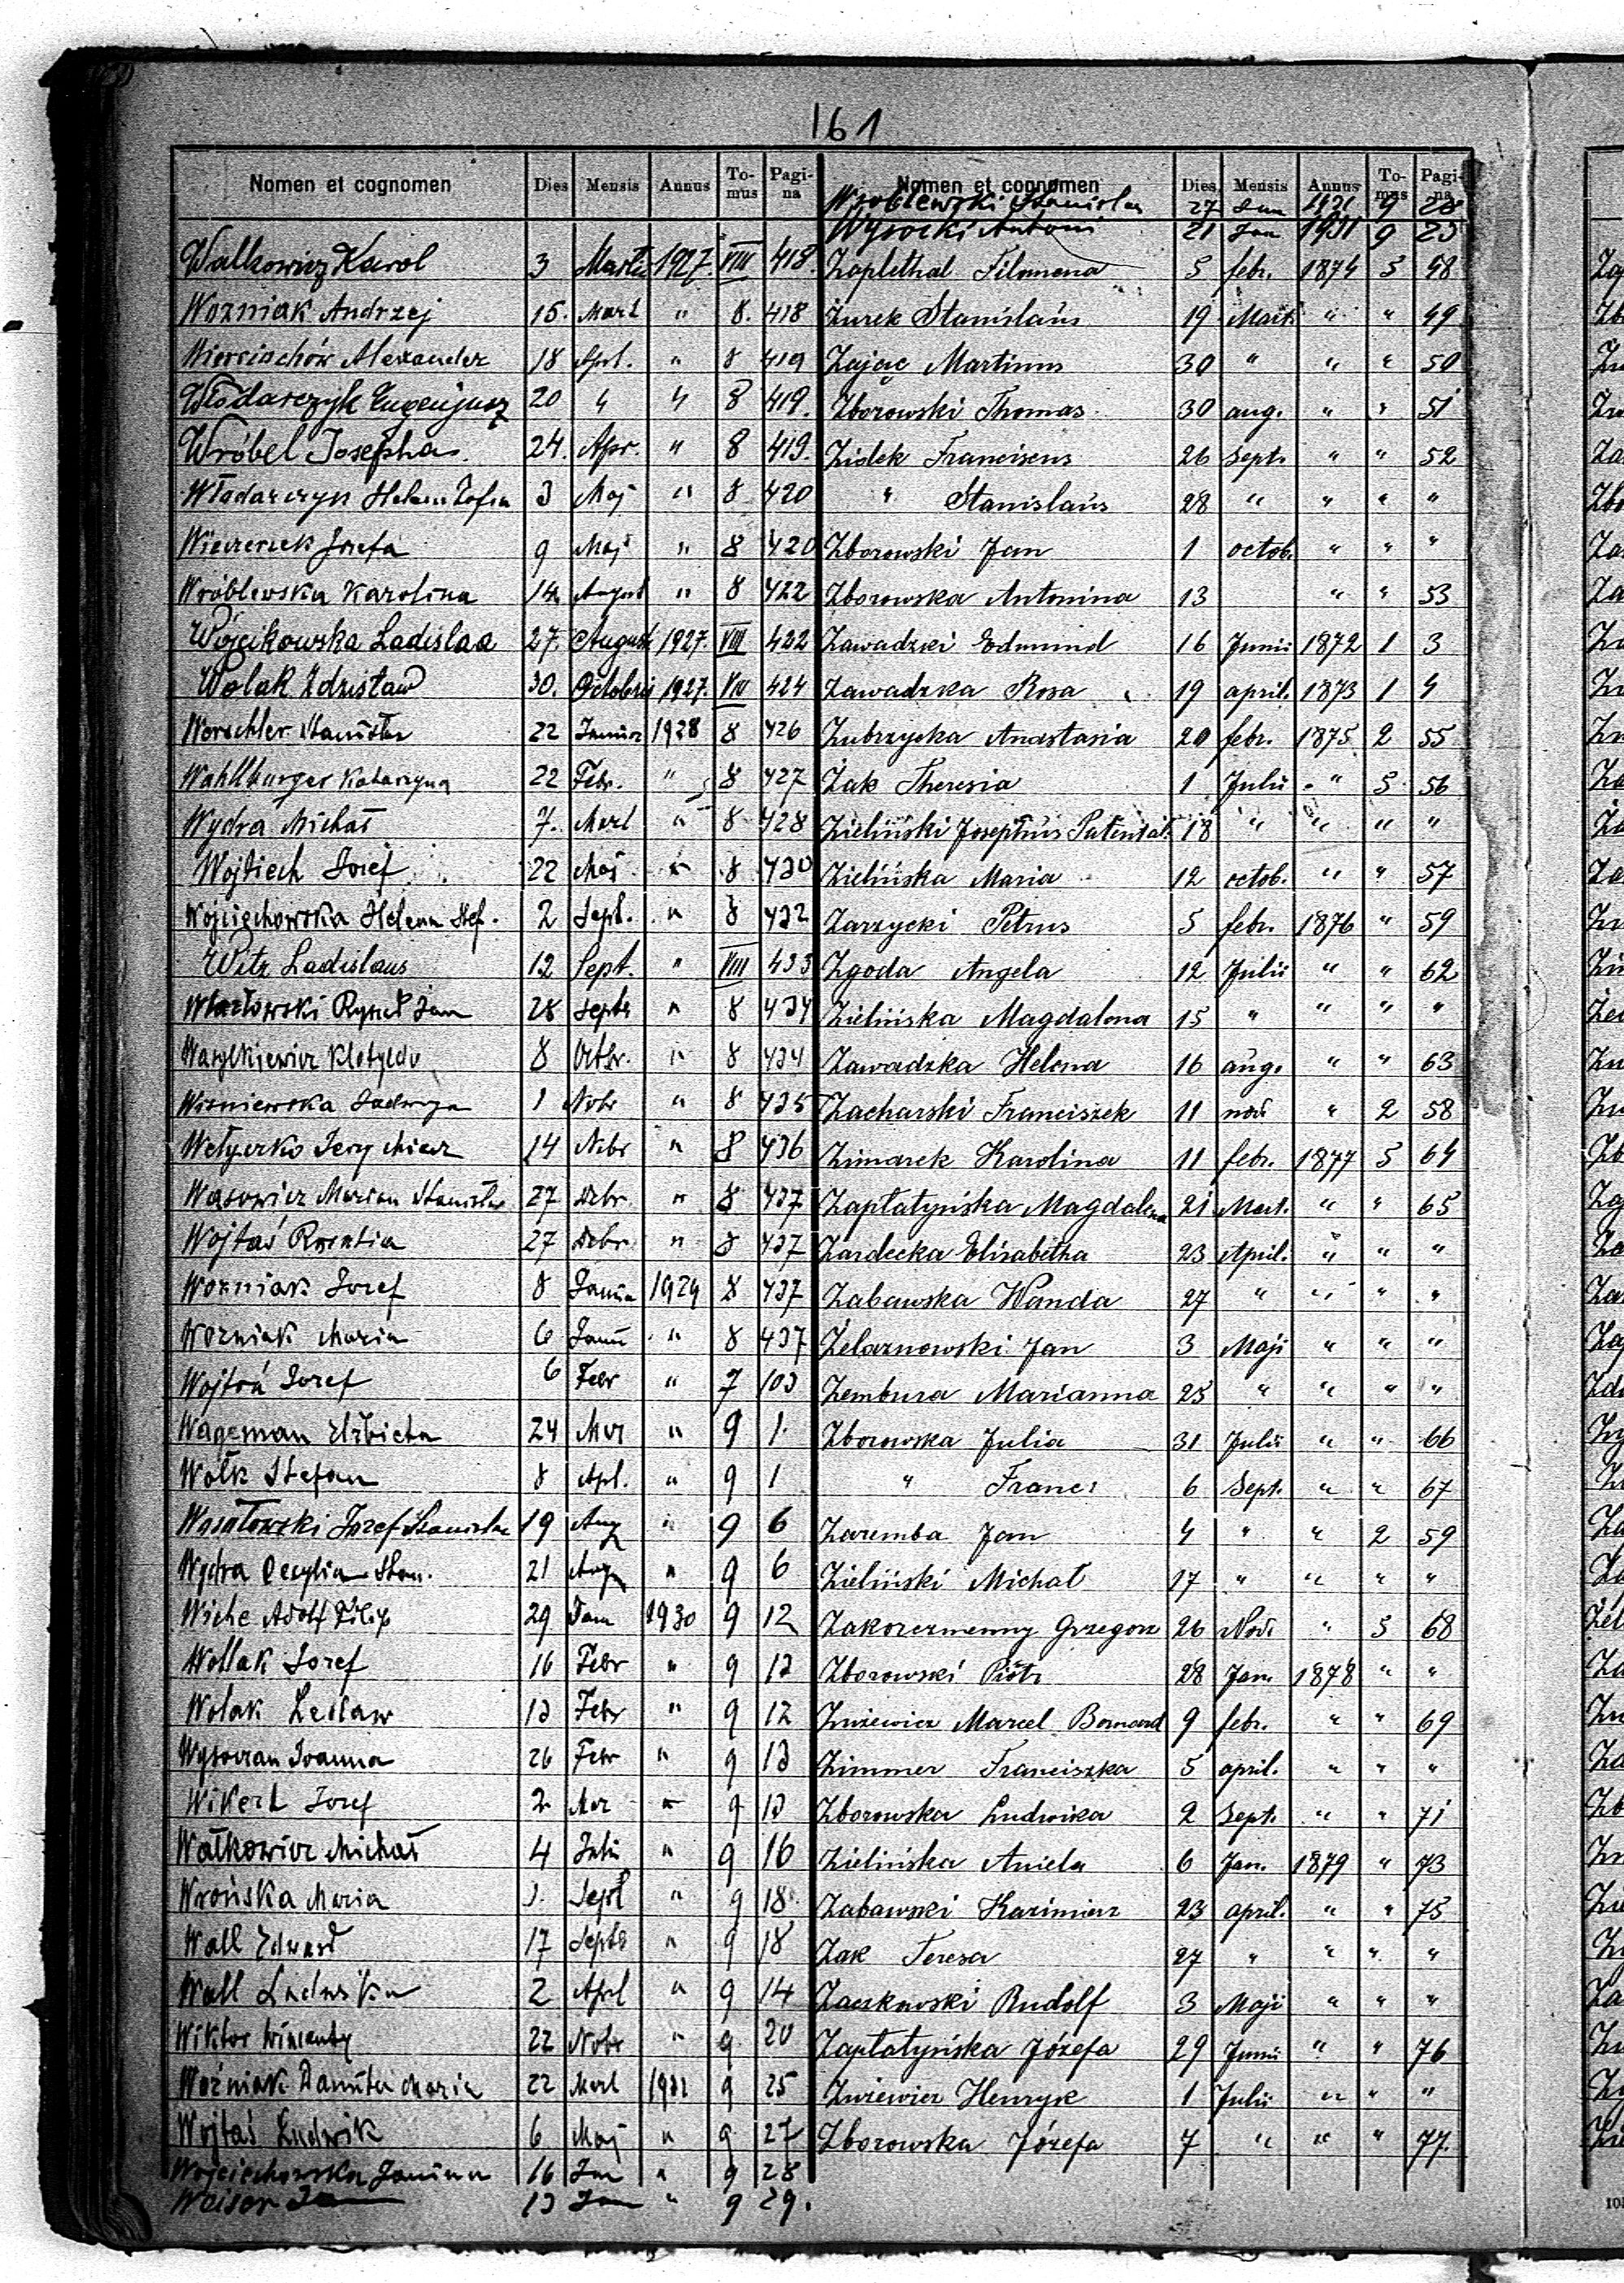 161
Nomen et cognomen Dies Mensis Annus To-mus Pagi-na
Walkowicz Karol 3 Martii 1927. VIII 418.
Wozniak Andrzej 15. Mart " 8. 418
Wiercischów Alexander 18 Apl. " 8 419
Włodarczyk Eugenjusz 20 " " 8 419.
Wróbel Josepha 24. Apr. " 8 419.
Włodarczyk Helena Zofia 3 Maj " 8 420
Wieczerzek Josefa 9 Maj " 8 420
Wróblewska Karolina 14 August " 8 422
Wójcikowska Ladislaa 27. August 1927. VIII 422
Wolak Zdzisław 30. Octobris 1927. VIII 424
Worschler 22 1928 8 426
Wahlburger Katarzyna 22 Febr. " 8 427
Wydra Michał 7. Mart " 8 428
Wojtiech Josef 22 Maj " 8 430
Wojciechowska Helena Stef. 2 Sept. " 8 432
Witz Ladislaus 12 Sept. " VIII 433
28 Septb " 8 434
8 Octbr. " 8 434
Wiszniewska Jadwiga 1 Nobr " 8 435
14 Nobr " 8 436
Wąsowicz Marian Stanisław 27 Dzbr. " 8 437
Wojtaś 27 Dzbr " 8 437
Wozniak Jozef 8 1929 8 437
Wozniak Maria 6 " 8 437
Jozef 6 Febr " 7 103
Wageman Elżbieta 24 Mar " 9 1.
Wołk Stefan 8 Apl. " 9 1
Wasatowski Jozef Stanisław 19 Aug " 9 6
Wydra Cecylia Stan. 21 Aug " 9 6
Wiche Adolf Filip 29 Jan 1930 9 12
Wollak Jozef 16 Febr " 9 13
Wolak Lesław 13 Febr " 9 12
Joanna 26 Febr " 9 13
Wikert Jozef 2 Mar " 9 13
Wałkowicz Michał 4 " 9 16
Wrońska Maria Sept " 9 18
Wall Edward 17 Septb " 9 18
Wall Ludwika 2 April " 9 14
Wiktor Wincenty 22 Nobr " 9 20
Wożniak Danuta Maria 22 Mart 1931 9 25
Wojtaś Ludwik 6 Maj " 9 27
Wojciechowska Janina 16 " 9 28
Weiser 13 " 9 29.
Nomen et cognomen Dies Mensis Annus To-mus Pagi-na
Wroblewski Stanisław 27 1931 9 28
Wysocki Antoni 21 Jan 1931 9 23
Zaplethal Filomena 5 febr. 1874 5 48
Żurek Stanislaus 19 Mart. " " 49
Zając Martinus 30 " " " 50
Zborowski Thomas 30 aug. " " 51
Zidek Franciscus 26 Sept. " " 52
" Stanislaus 28 " " " "
Zborowski Jan 1 octob. " " "
Zborowska Antonina 13 " " 53
Zawadzki Edmund 16 Junii 1872 1 3
Zawadzka Rosa 19 april. 1873 1 4
Zubrzycka Anastasia 20 febr. 1875 2 55
Żak Theresia 1 Julii " 5 56
Zieliński Josephus 18 " " " "
Zielińska Maria 12 octob. " " 57
Zarzycki Petrus 5 febr. 1876 " 59
Zgoda Angela 12 Julii " " 62
Zielińska Magdalena 15 " " " "
Zawadzka Helena 16 aug. " " 63
Zacharski Franciszek 11 nov. " 2 58
Zimarek Karolina 11 febr. 1877 5 64
Zapłatyńska Magdalena 21 Mart. " " 65
Zardecka Elisabetha 23 April. " " "
Zabawska Wanda 27 " " " "
Żelaznowski Jan 3 Maji " " "
Zembura Marianna 25 " " " "
Zborowska Julia 31 Julii " " 66
" Franc. 6 Sept. " " 67
Zaremba Jan 4 " " 2 59
Zieliński Michał 17 " " " "
Zakorzmenny Grzegorz 26 Nov. " 5 68
Zborowski Piotr 28 Jan. 1878 " "
Znziewicz Marcel Bernard 9 febr. " " 69
Zimmer Franciszka 5 april. " " "
Zborowska Ludwika 2 Sept. " " 71
Zielińska Aniela 6 Jan. 1879 " 73
Zabawski Kazimierz 23 april. " " 75
Żak Teresa 27 " " " "
Zaczkowski Rudolf 3 Maji " " "
Zapłatyńska Józefa 29 Junii " " 76
Henryk 1 Julii " " "
Zborowska Józefa 7 " " " 77.